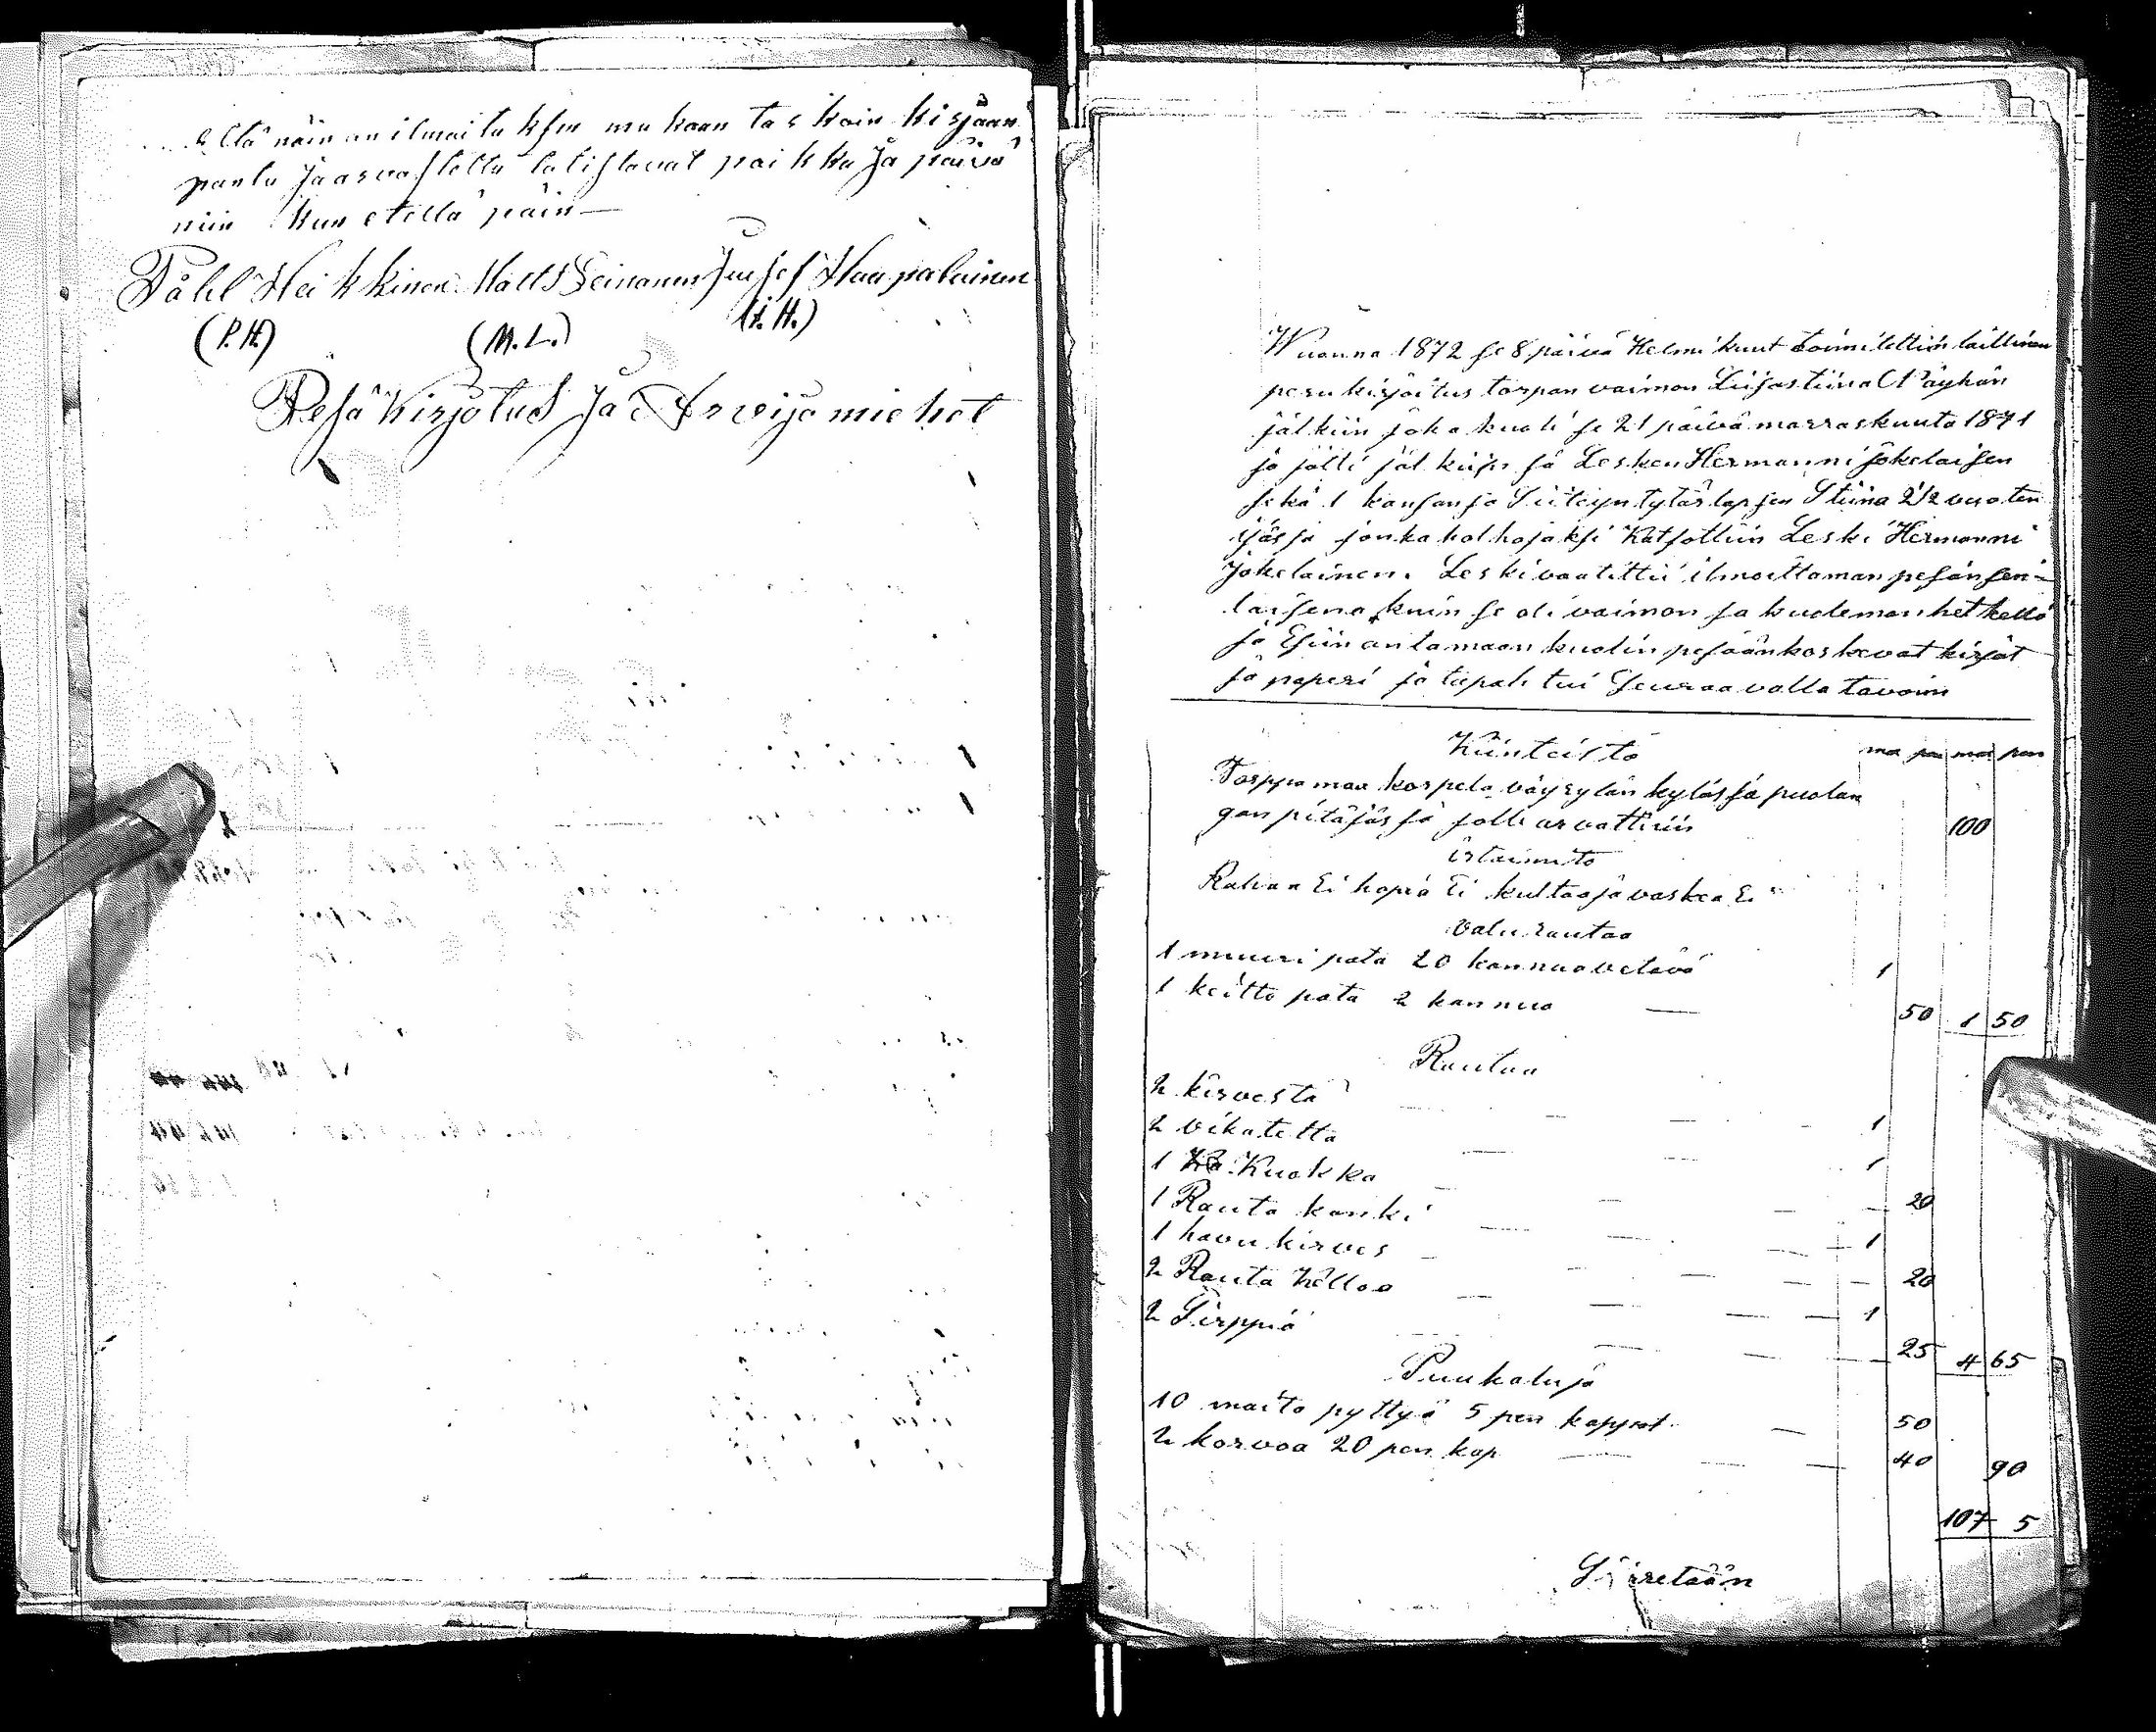 Että näin on ilmoituksen mukaan tas koin kirjaan
pantu ja arvostettu totistavat paikka ja päivä
niin kun etellä päin —
Påhl Heikkinen Matts Leinonen Juusef Haapalainen
(P. H.) (M. L.) (J. H.)
Pesä Kirjotus Ja Arvijo miehet
Wuonna 1872 se 8 päivä Helmikuut toimitettiin laillinen
perukirjoitus torpan vaimon Liisastiina Väyhän
jälkiin joka kuoli se 21 päivä marraskuuta 1871
ja jätti jälkiinsä Lesken Hermanni Jokelaisen
sekä 1 kansansa Siiteyn tytär lapsen Stiina 2 1/2 vuoten
ijässä jonka holhojaksi Katsottiin Leski Hermanni
Jokelainen. Leski vaatittii ilmoittaman pesän sen-
laisena kuin se oli vaimon sa kuoleman hetkellä
ja Esiin antamaan kuolin pesäänkoskevat kirjat
ja paperi ja tapahtui Seuraavalla tavoin
Kiinteistö ma pen mar pen
Torppa maa korpela väyrylän kylässä puolan
gan pitäjässä jolle arvattiin 100
irtaimito
Rahaa Ei hopia Ei kultaa ja vaskea Ei
Valu rautaa
1 muuri pata 20 kannua vetävä 1
1 keitto pata 2 kannua — 50 1 50
Rautaa
2 kirvestä 1
2 vikatetta 1
1 Kuokka 20
1 Rauta kanki 1
1 havu kirves 20
2 Rauta kelloa 1
2 Sirppiä 25 4 65
Puukaluja
10 maito pyttyä 5 pen kappal 50
2 korvoa 20 pen kap 40 90
107 5
Siiretään